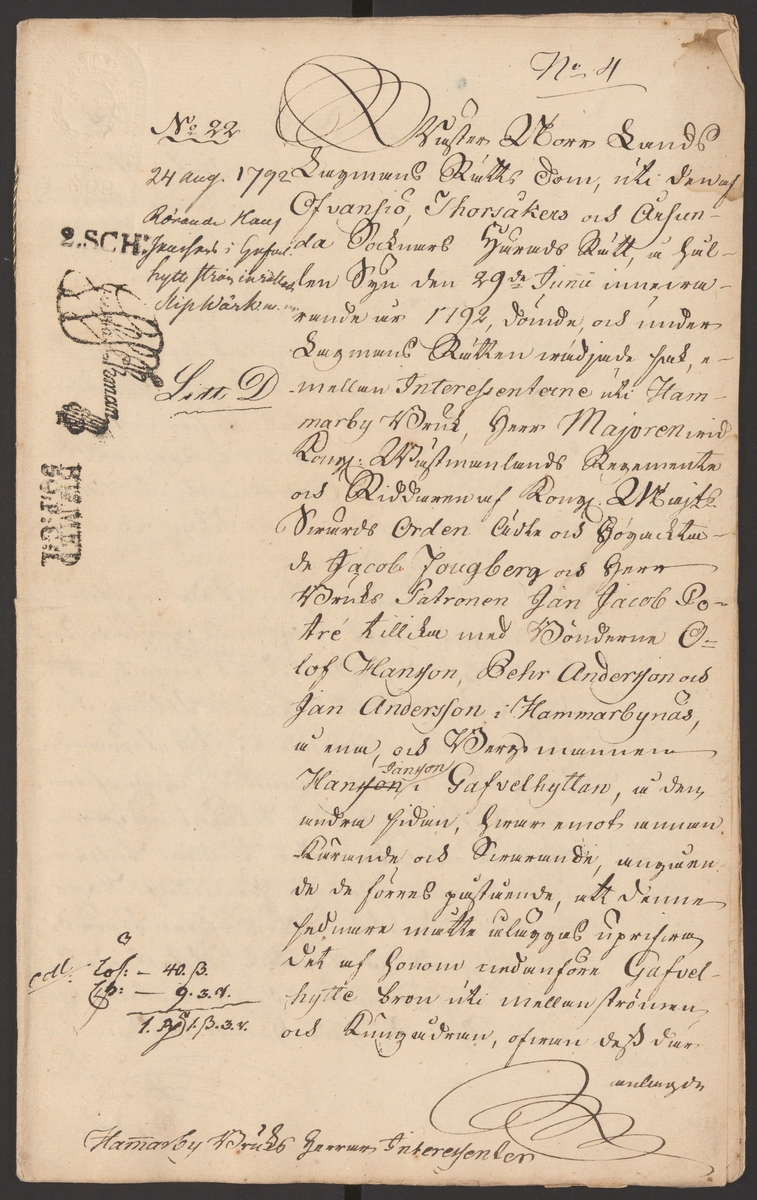 No 4
No 22
24 aug. 1792
Rörande Hans
Janssons i Gafvel-
hytte ström inrättade
slip Wärk m. m.
2.SCH:
Litt D
Wäster Norr Lands
Lagmans Rätts Dom, uti den af
Ofvansjö, Thorsåkers och Årsun-
da Socknars Härads Rätt, å hål-
len Syn den 29de Junii innewa-
rande år 1792, dömde, och under
Lagmans Rätten wädjade sak, e-
mellan Interessenterne uti Ham-
marby Bruk, Herr Majoren wid
Kongl: Wästmanlands Regemente
och Riddaren af Kongl. Majts
Swärds Orden Ädle och Högackta-
de Jacob Ljungberg och Herr
Bruks Patronen Jan Jacob Po-
tré tillika med Bönderne O-
lof Hansson, Pehr Andersson och
Jan Andersson i Hammarbynäs,
å ena, och Bergsmannen
Jansson
Hansson i Gafvelhyttan, å den
andra sidan, hwar emot annan
Kärande och Swarande, angåen-
de de förres påstående, att denne
sednare måtte åläggas uprifwa
det af honom nedanföre Gafvel-
hytte bron uti mellanströmen
och Kungsådran, ofwan dess där
anlagde
Lös: — 40. ß.
Chp: — 9. 3. r.
1. Rd 1. ß. 3. r.
Hammarby Bruks Herrar Interessenter